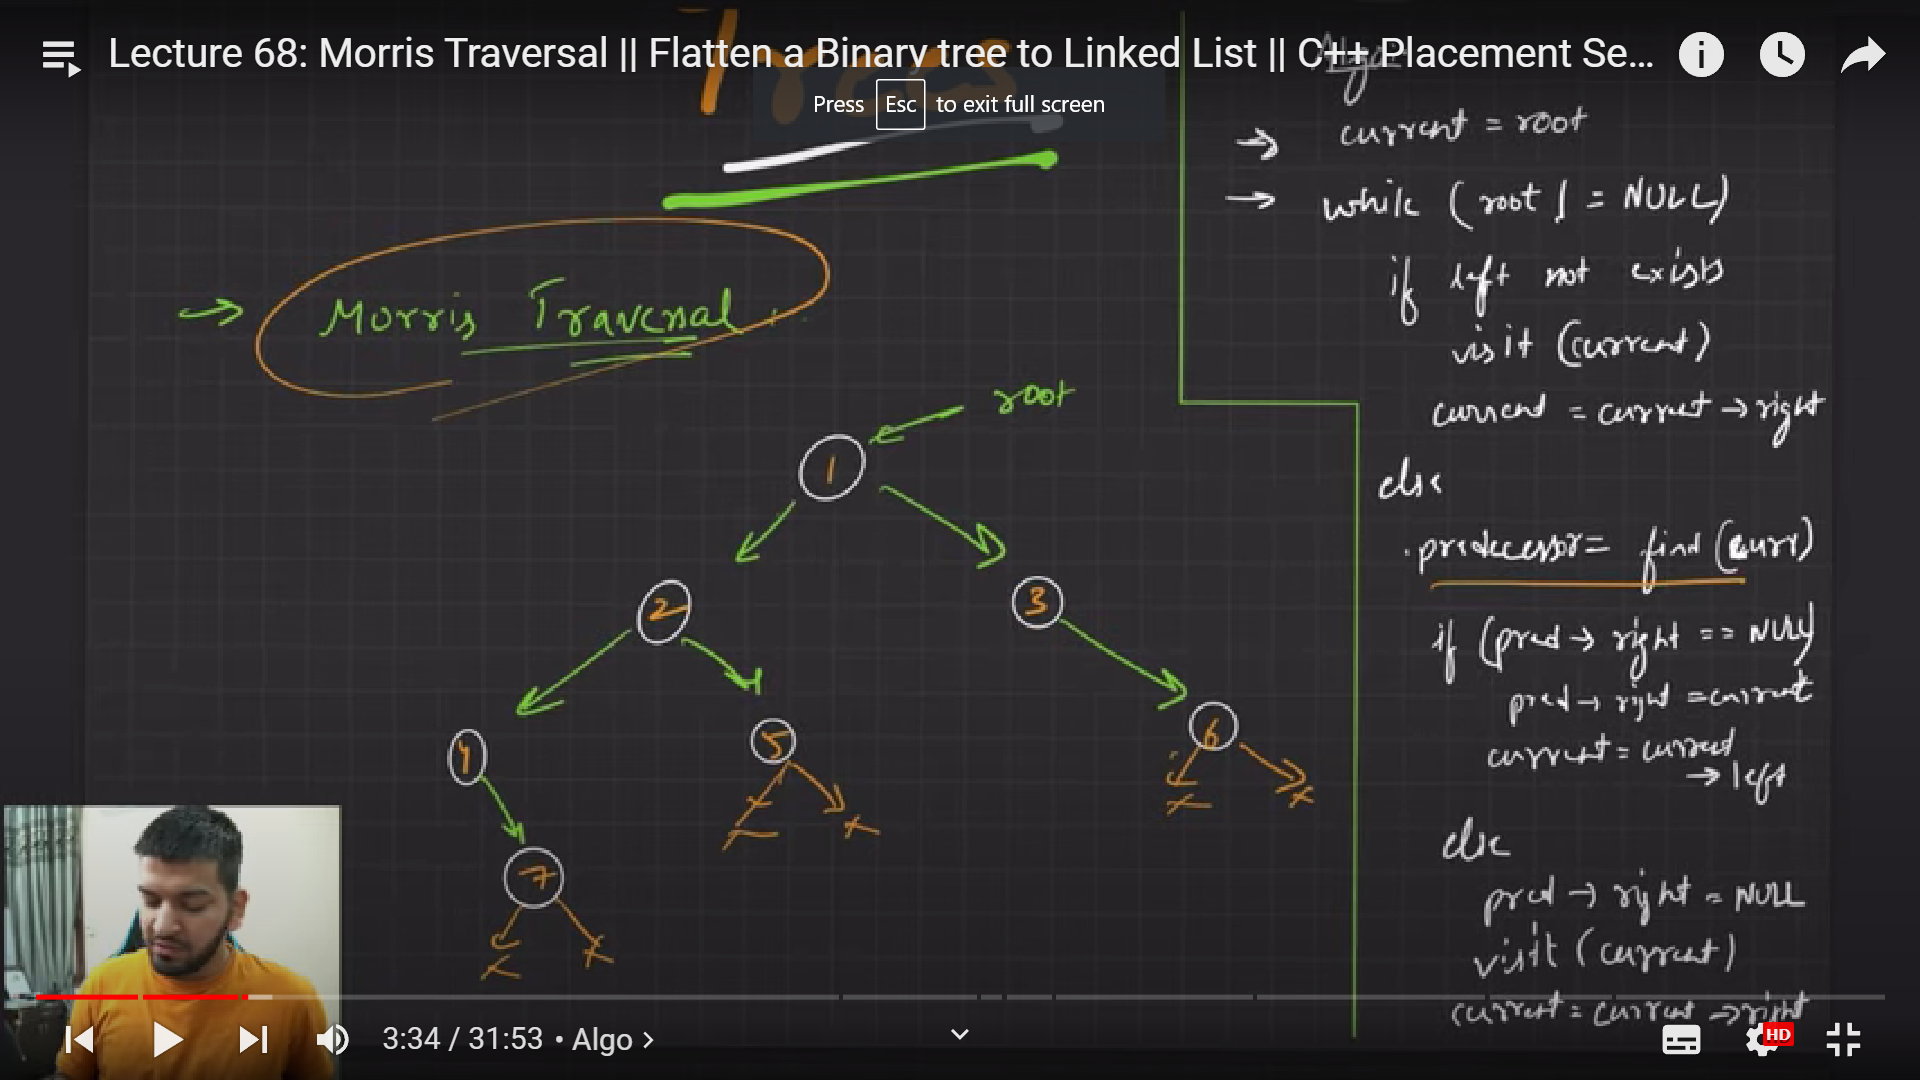 Lecture 68: Morris Traversal || Flatten a Binary tree to Linked List || C++ Placement Se...
Press Esc to exit full screen
Trees
Algo
current = root
while (root != NULL)
if left not exists
visit (current)
current = current → right
else
predecessor = find (curr)
if (pred → right == NULL)
pred → right = current
current = current
→ left
else
pred → right = NULL
visit (current)
current = current → right
→ Morris Traversal
root
1
2
3
4
5
6
7
3:34 / 31:53 • Algo >
HD